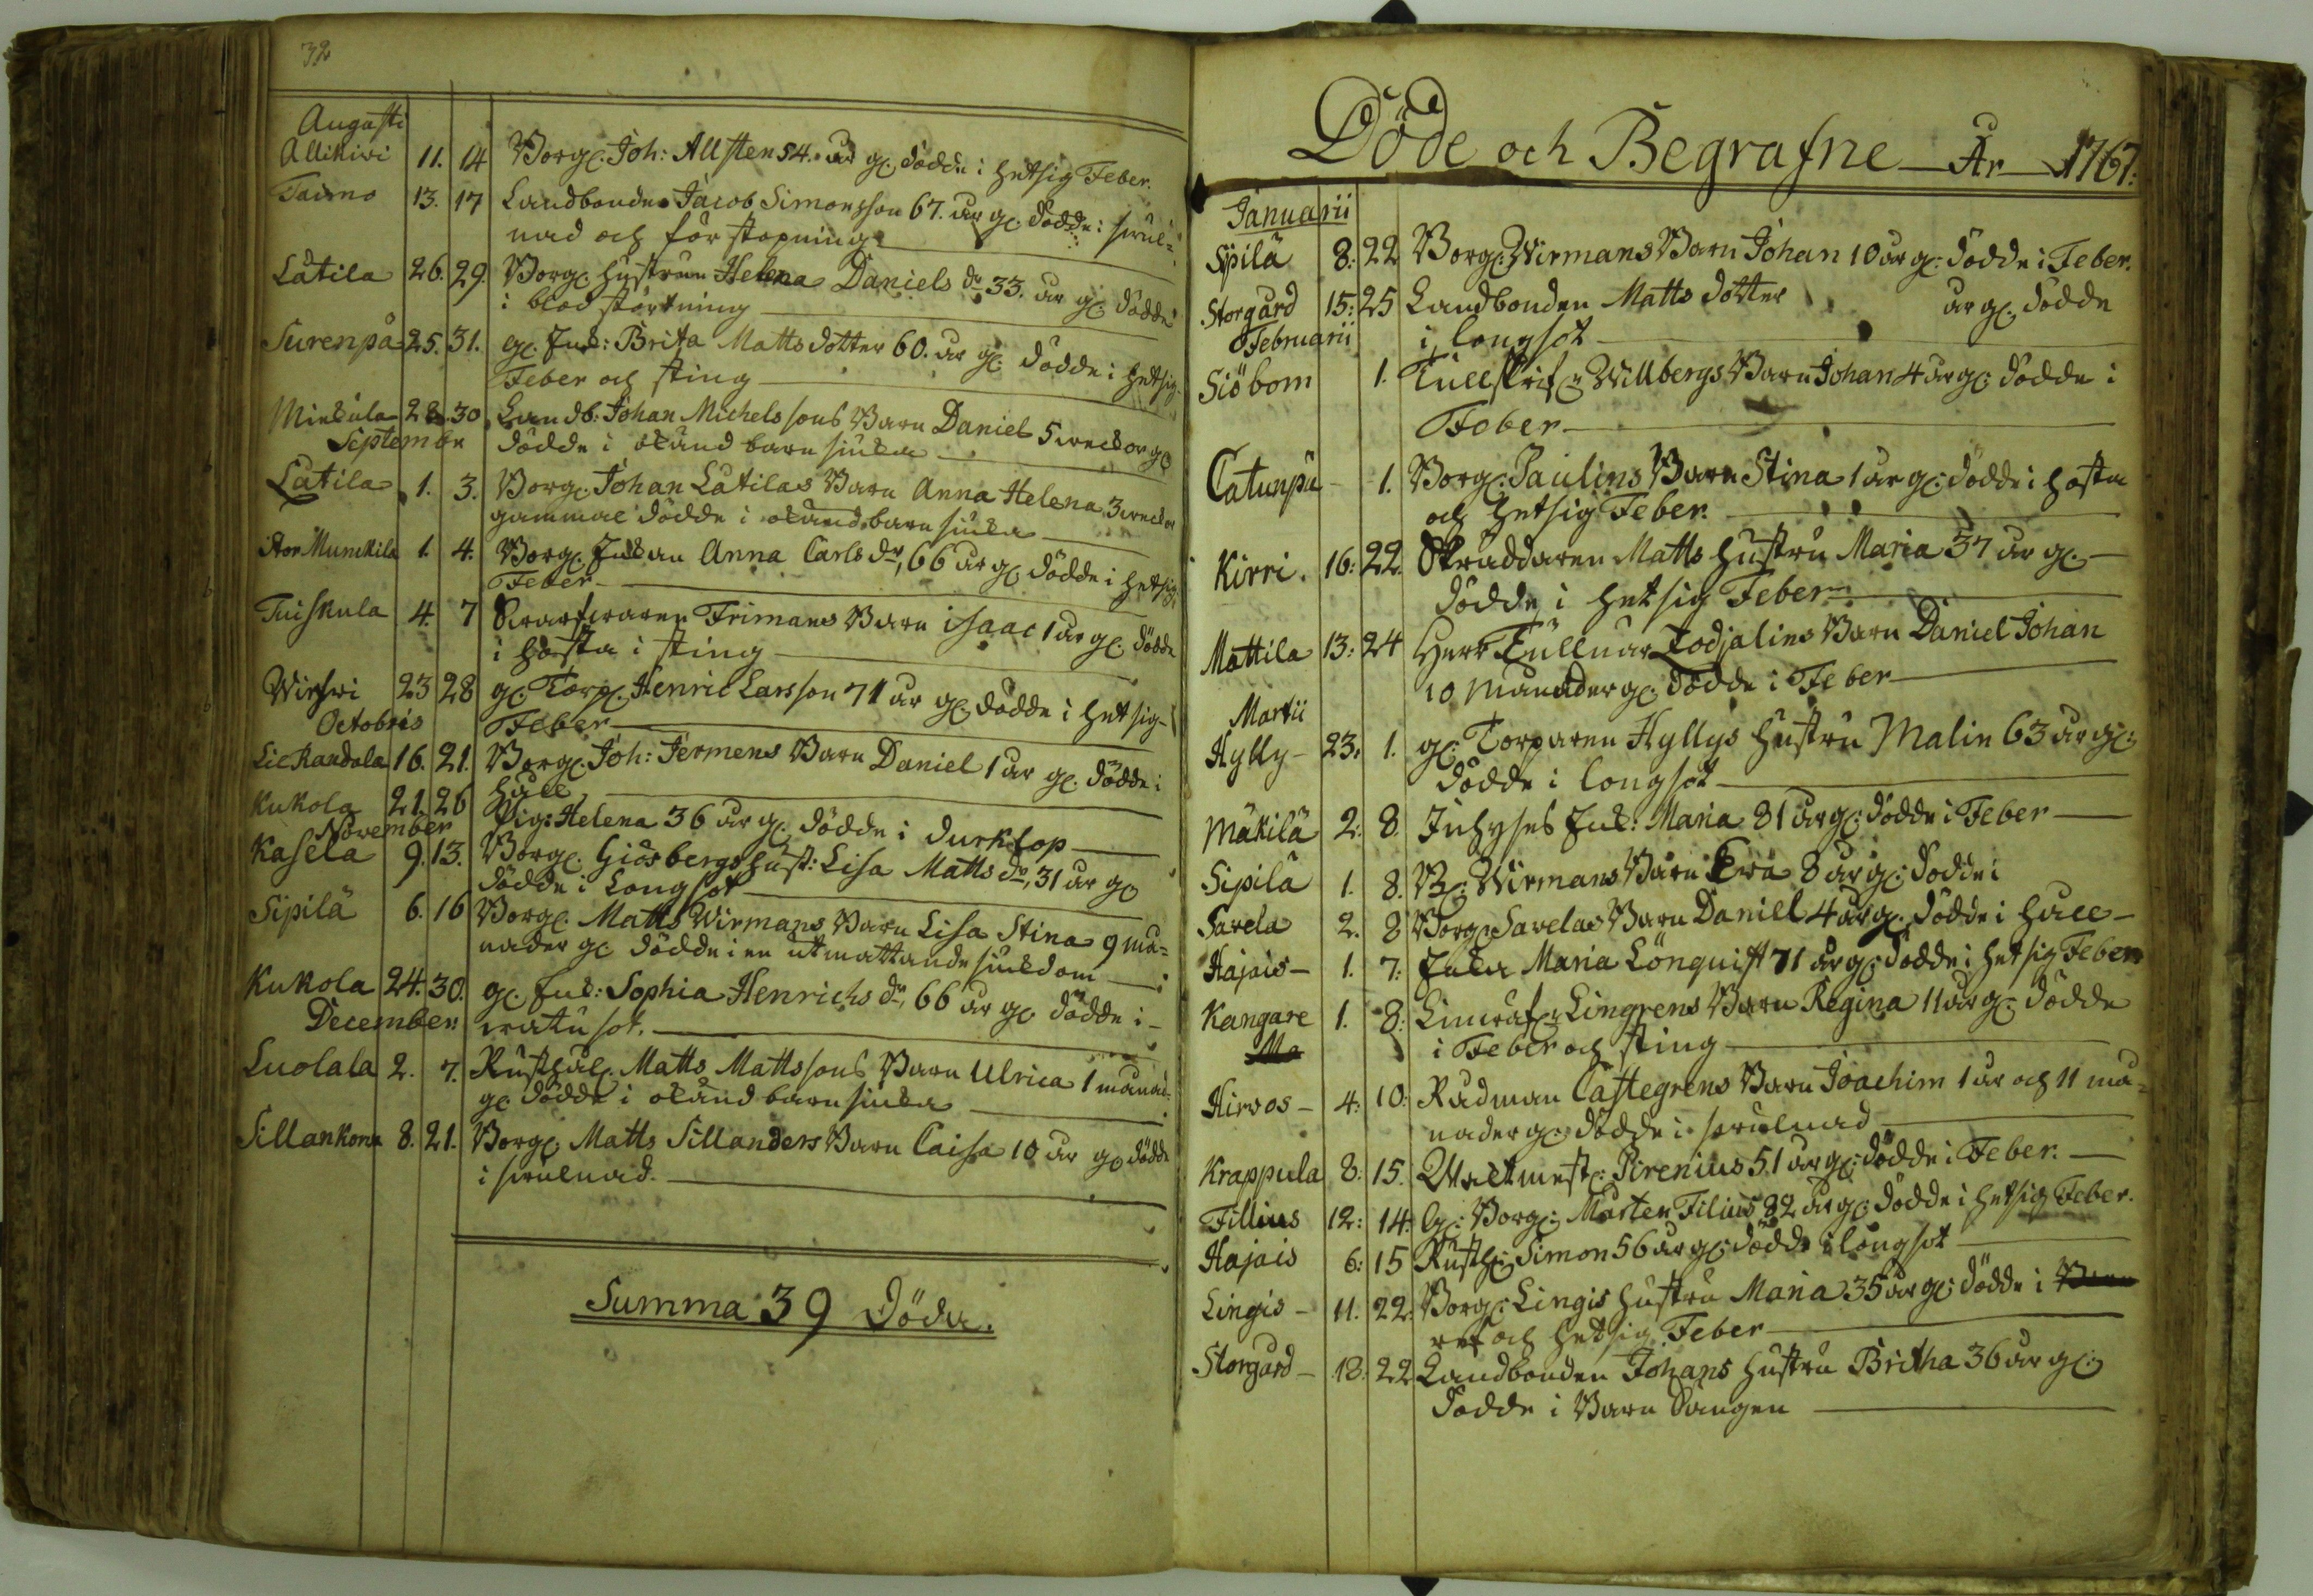 32
Augusti
Allikivi 11. 14 Borg: Joh: Allsten 54. år gl. dödde i hetsig Feber.
Taimo 13. 17 Landbonden Jacob Simonsson 67. år gl. dödde i swul-
nad och förstopning
Låtila 26. 29. Borg. hustrun Helena Daniels dr 33. år gl. dödde
i blodstörtning
Surenpå 25. 31. gl. Enk: Brita Mattsdotter 60. år gl. dödde i hetsig
Feber och sting
Mickula 28. 30 Landb: Johan Michelssons Barn Daniel 5 weckor gl
dödde i okänd barnsiuka
September
Låtila 1. 3. Borg. Johan Låtilas Barn Anna Helena 3 weckor
gammal dödde i okänd barnsiuka
Stor Munckila 1. 4. Borg. Enkan Anna Carls dr, 66 år gl. dödde i hetsig
Feber
Tuiskula 4. 7 Swarfwaren Frimans Barn isaac 1 år gl. dödde
i hosta i sting
23 28 gl. Torp. Henric Larsson 71 år gl. dödde i hetsig
Feber
Octobris
Lie Randala 16. 21. Borg. Joh: Jermens Barn Daniel 1 år gl. dödde i
håll
Kukola 21. 26 Pig: Helena 36 år gl. dödde i durklop
November
Kasela 9. 13. Borg. Giösbergs hust: Lisa Matts dr, 31 år gl
dödde i Longsot
Sipilä 6. 16 Borg. Matts Wirmans Barn Lisa Stina 9 må-
nader gl dödde i en utmattande siukdom
Kukola 24. 30. gl. Enk: Sophia Henrichs dr, 66 år gl dödde i
watusot.
December
Luolala 2. 7. Rusthål. Matts Mattssons Barn Ulrica 1 månad
gl dödde i okänd barnsiuka
Sillankona 8. 21. Borg. Matts Sillanders Barn Caisa 10 år gl dödde
i swulnad.
Summa 39 Döda.
Döde och Begrafne År 1767:
Januarii
Sipilä 8: 22 Borg. Wirmans Barn Johan 10 år gl: dödde i Feber.
Storgård 15: 25 Landbonden Matts dotter år gl. dödde
i longsot
Februarii
Siöbom 1. Tullskrif: Willbergs Barn Johan 4 år gl: dödde i
Feber
Catunpä 1. Borg: Paulins Barn Stina 1 år gl: dödde i hosta
och hetsig Feber.
Kirri. 16: 22. Skräddaren Matts hustru Maria 37 år gl.
dödde i hetsig Feber
Mattila 13: 24 Herr Barn Daniel Johan
10 månader gl: dödde i Feber
Martii
Hylly 23: 1. gl: Torparen Hyllys hustru Malin 63 år gl:
dödde i longsot
Mäkilä 2: 8 Enk: Maria 81 år gl: dödde i Feber
Sipilä 1. 8. B: Wirmans Barn Ewa 8 år gl: dödde i
Savela 2. 8 Borg: Savelas Barn Daniel 4 år gl: dödde i håll
Hajais 1. 7. Enka Maria Lönquist 71 år gl: dödde i hetsig Feber
Kangare 1. 8: Lingrens Barn Regina 11 år gl: dödde
Ma
i Feber och sting
Hirvos 4: 10: Rådman Castegrens Barn Joachim 1 år och 11 må-
nader gl: dödde i swulnad
Krappula 8: 15. Waktmest: Pirenius 51 år gl: dödde i Feber.
Fillius 12: 14: gl: Borg: Mårten Filius 82 år gl: dödde i hetsig Feber.
Hajais 6: 15 Rusth: Simon 56 år gl: dödde i longsot
Lingis 11. 22: Borg: Lingis hustru Maria 35 år gl: dödde i Barn
ref och hetsig Feber
Storgård 18. 22 Landbonden Johans hustru Britha 36 år gl:
dödde i Barn Sängen